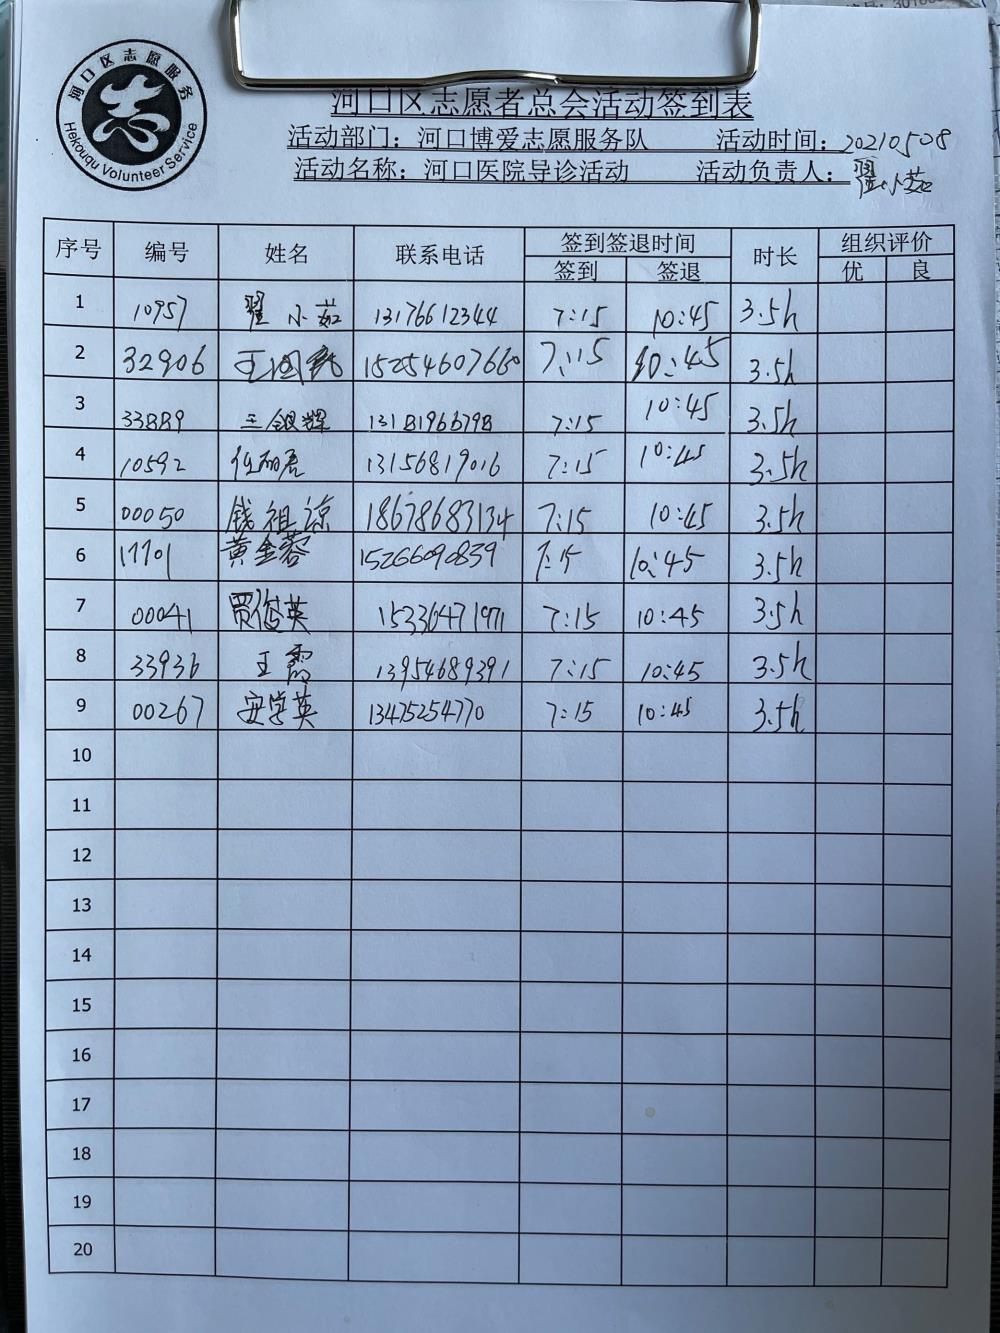 河口区志愿服务
Hekouqu Volunteer Service
河口区志愿者总会活动签到表
活动部门：河口博爱志愿服务队 活动时间：20210508
活动名称：河口医院导诊活动 活动负责人：翟小茹
序号 编号 姓名 联系电话 签到签退时间 时长 组织评价
签到 签退 优 良
1 10957 翟小茹 13176612344 7:15 10:45 3.5h
2 32906 王国 15254607660 7:15 10:45 3.5h
3 33889 王银辉 13181966798 7:15 10:45 3.5h
4 10592 任丽 13156819016 7:15 10:45 3.5h
5 00050 钱祖谅 18678683134 7:15 10:45 3.5h
6 17701 黄金蓉 15266090839 7:15 10:45 3.5h
7 00041 贾俊英 15336471971 7:15 10:45 3.5h
8 33936 王霞 13954689391 7:15 10:45 3.5h
9 00267 安学英 13475254770 7:15 10:45 3.5h
10
11
12
13
14
15
16
17
18
19
20